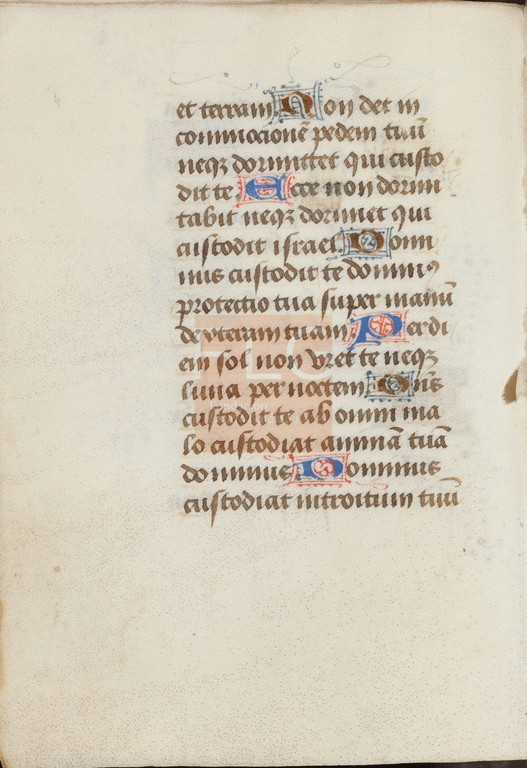 et terram Non det in
com̄ocionē pedem tuū
neqꝫ dormitet qui custo
dit te. Ecce non dormi
tabit neqꝫ dormiet qui
custodit israel. Domi
nus custodit te dominꝰ
protectio tua super manū
dexteram tuam. Perdi
em sol non vret te neqꝫ
luna per noctem Dn̄s
custodit te ab omni ma
lo custodiat animā tuā
dominus Dominus
custodiat introitum tuū